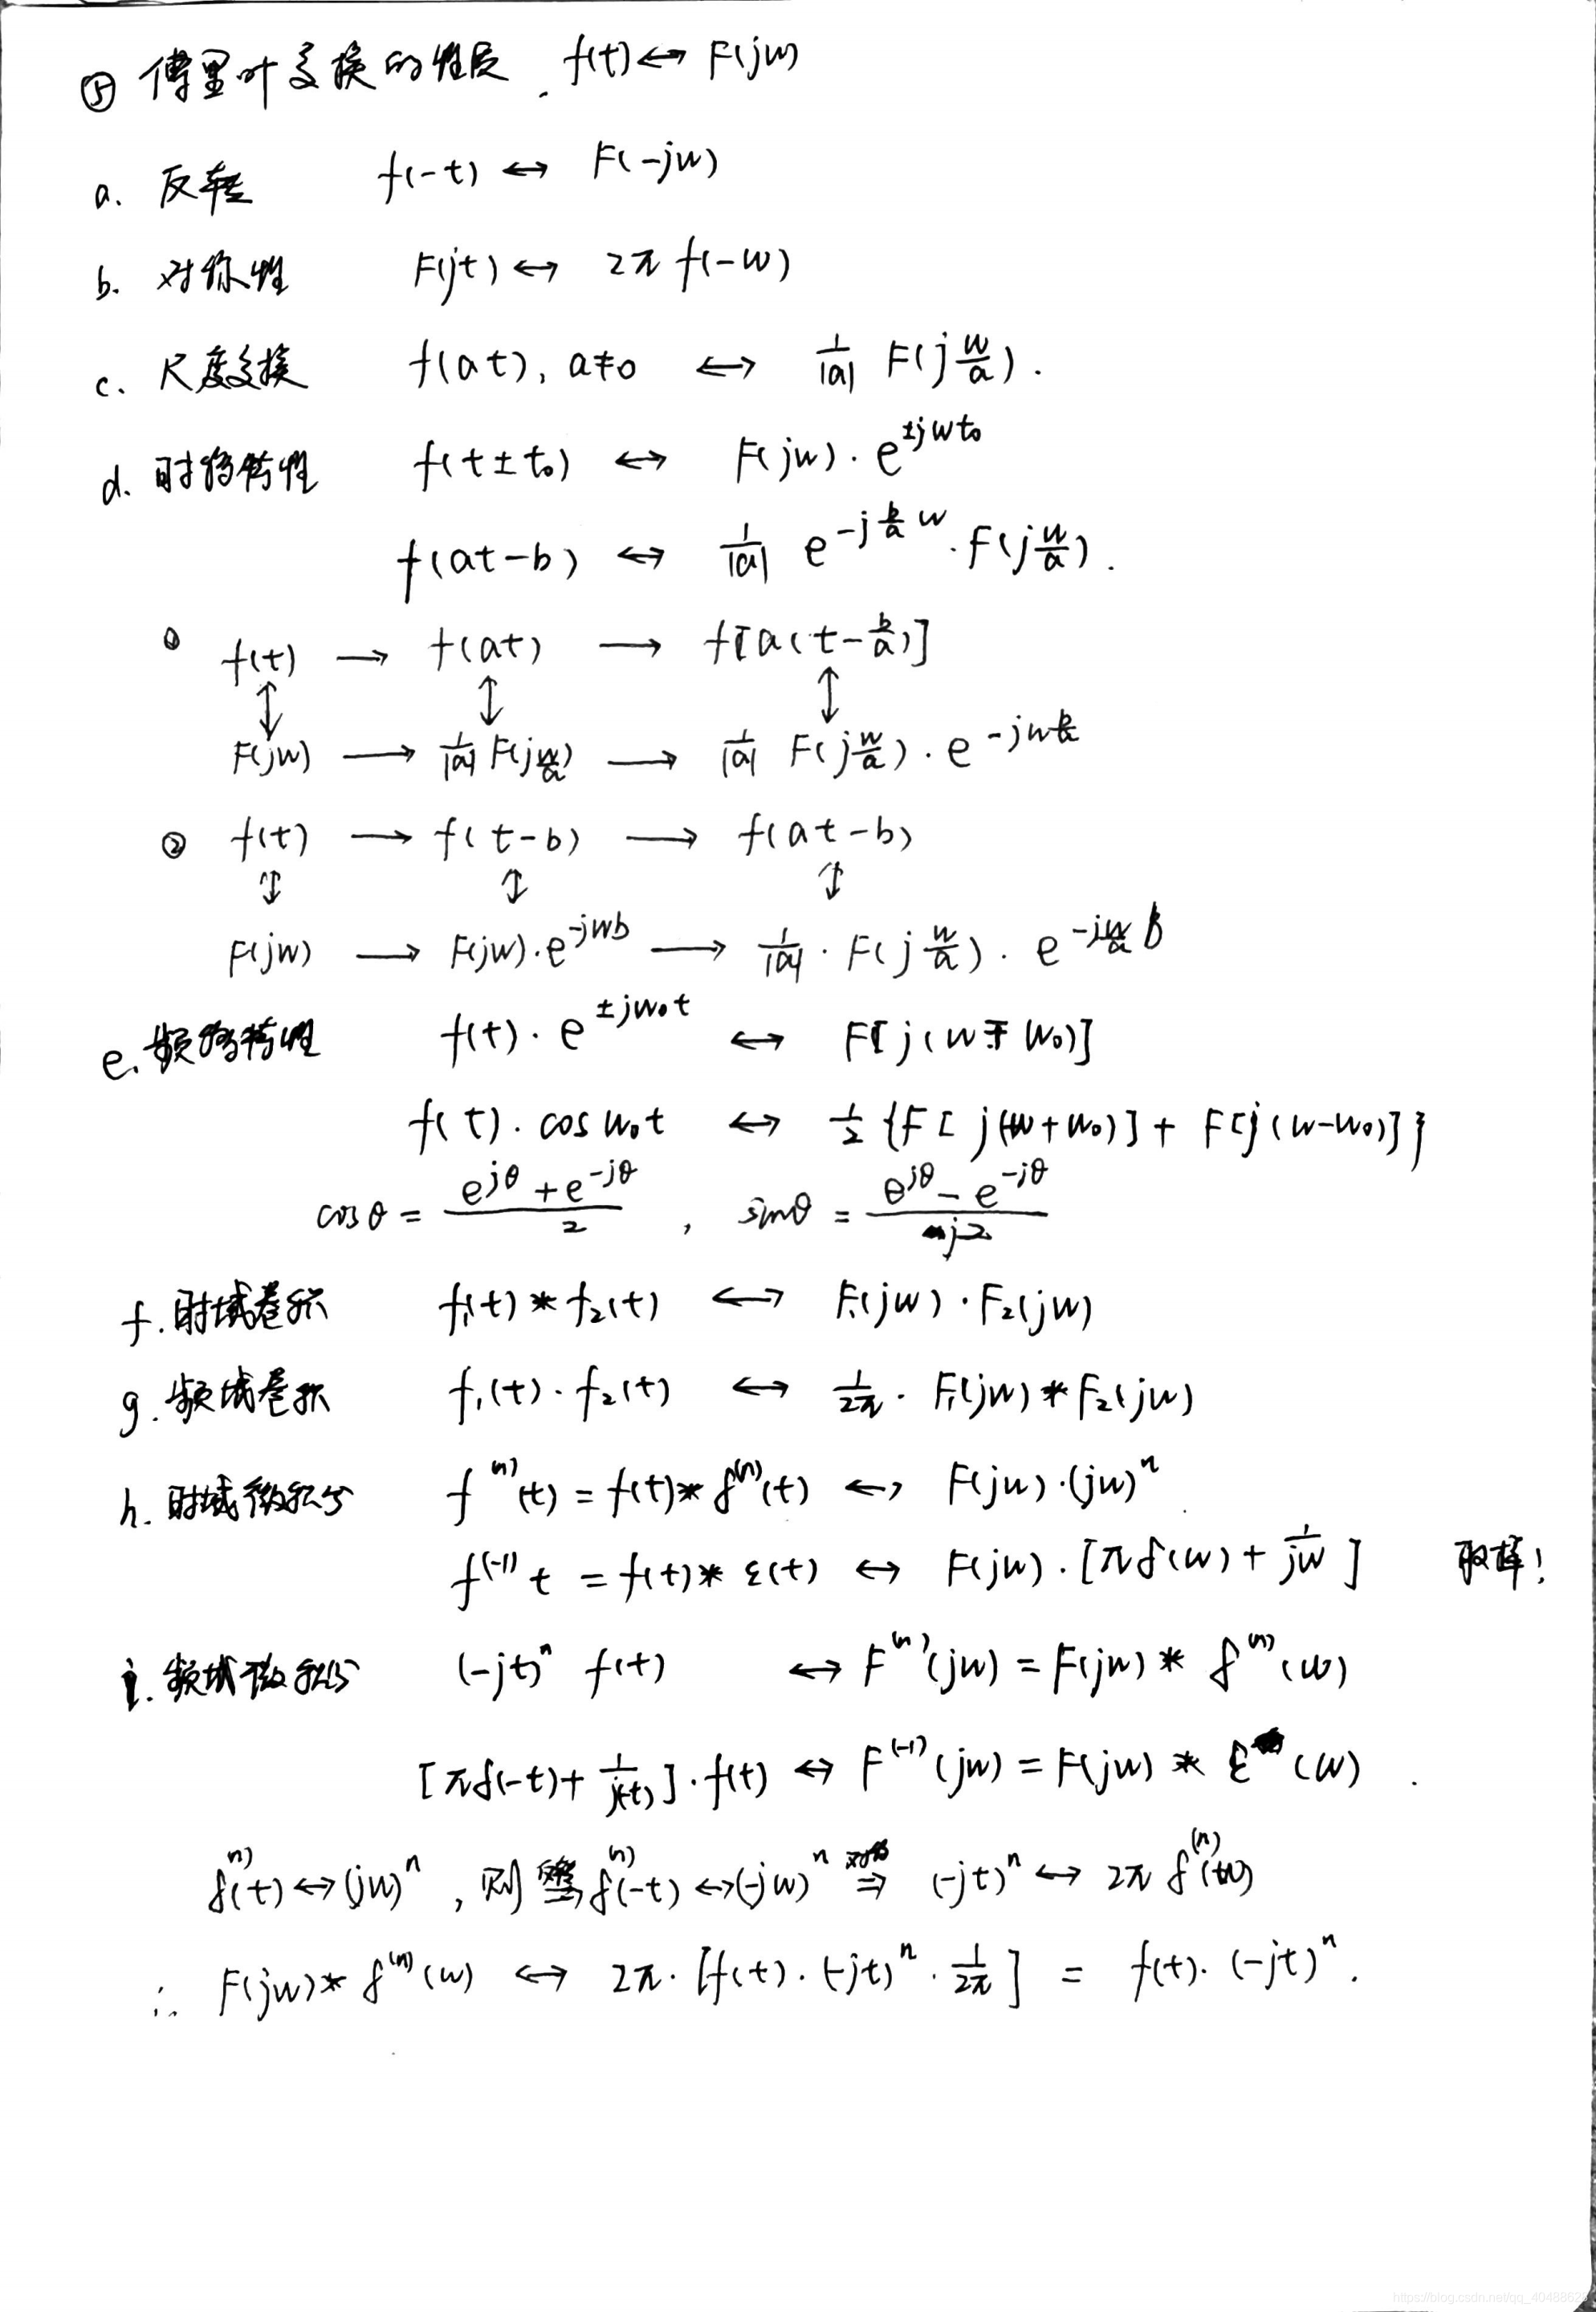 ⑤ 傅里叶变换的性质. f(t)↔F(jw)
a. 反转 f(-t) ↔ F(-jw)
b. 对称性 F(jt) ↔ 2π f(-w)
c. 尺度变换 f(at), a≠0 ↔ 1/|a| F(j w/a).
d. 时移特性 f(t±t₀) ↔ F(jw)·e^{±jwt₀}
f(at-b) ↔ 1/|a| e^{-j b/a w}·F(j w/a).
① f(t) → f(at) → f[a(t-b/a)]
↕ ↕ ↕
F(jw) → 1/|a| F(j w/a) → 1/|a| F(j w/a)·e^{-jw b/a}
② f(t) → f(t-b) → f(at-b)
↕ ↕ ↕
F(jw) → F(jw)·e^{-jwb} → 1/|a|·F(j w/a)·e^{-j w/a b}
e. 频移特性 f(t)·e^{±jw₀t} ↔ F[j(w∓w₀)]
f(t)·cosw₀t ↔ 1/2 {F[j(w+w₀)]+F[j(w-w₀)]}
cosθ = (e^{jθ}+e^{-jθ})/2 , sinθ = (e^{jθ}-e^{-jθ})/j2
f. 时域卷积 f₁(t)*f₂(t) ↔ F₁(jw)·F₂(jw)
g. 频域卷积 f₁(t)·f₂(t) ↔ 1/2π·F₁(jw)*F₂(jw)
h. 时域微积分 f^{(n)}(t)=f(t)*δ^{(n)}(t) ↔ F(jw)·(jw)^n
f^{(-1)}t = f(t)*ε(t) ↔ F(jw)·[πδ(w)+1/jw] 取样!
i. 频域微积分 (-jt)^n f(t) ↔ F^{(n)}(jw)=F(jw)*δ^{(n)}(w)
[πδ(-t)+1/j(-t)]·f(t) ↔ F^{(-1)}(jw)=F(jw)*ε(w).
δ^{(n)}(t)↔(jw)^n , 则 δ^{(n)}(-t)↔(-jw)^n 对称⇒ (-jt)^n ↔ 2πδ^{(n)}(w)
∴ F(jw)*δ^{(n)}(w) ↔ 2π·[f(t)·(-jt)^n·1/2π] = f(t)·(-jt)^n.